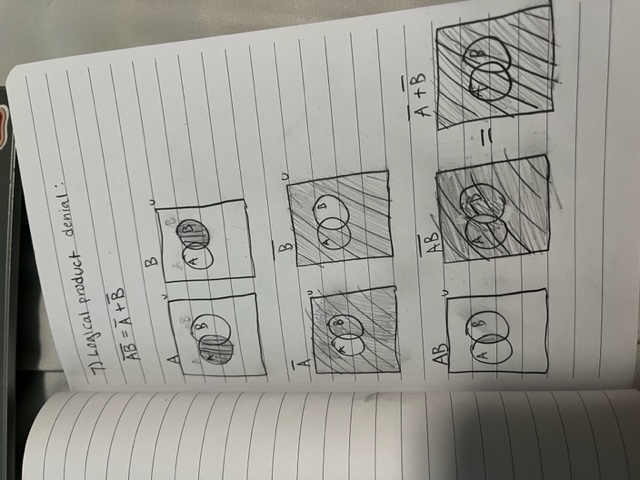 7) Logical product denial:
A̅B̅ = A̅ + B̅
A U B U
A B A B
A B A B
A̅ U B̅ U
A B A B
AB U A̅B̅ A̅ + B̅
A B A B = A B